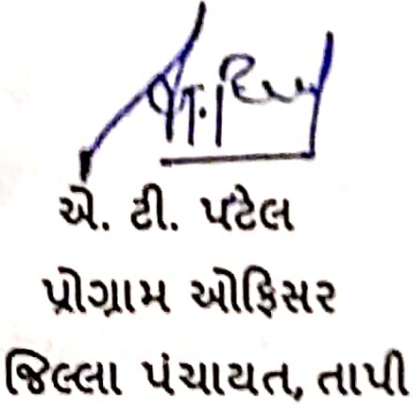 એ. ટી. પટેલ
પ્રોગ્રામ ઓફિસર
જિલ્લા પંચાયત, તાપી